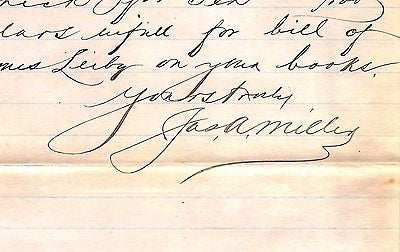 for Ten
lars infull for bill of
mes Leiby on your books.
Yours truly
Jas. A. Miller